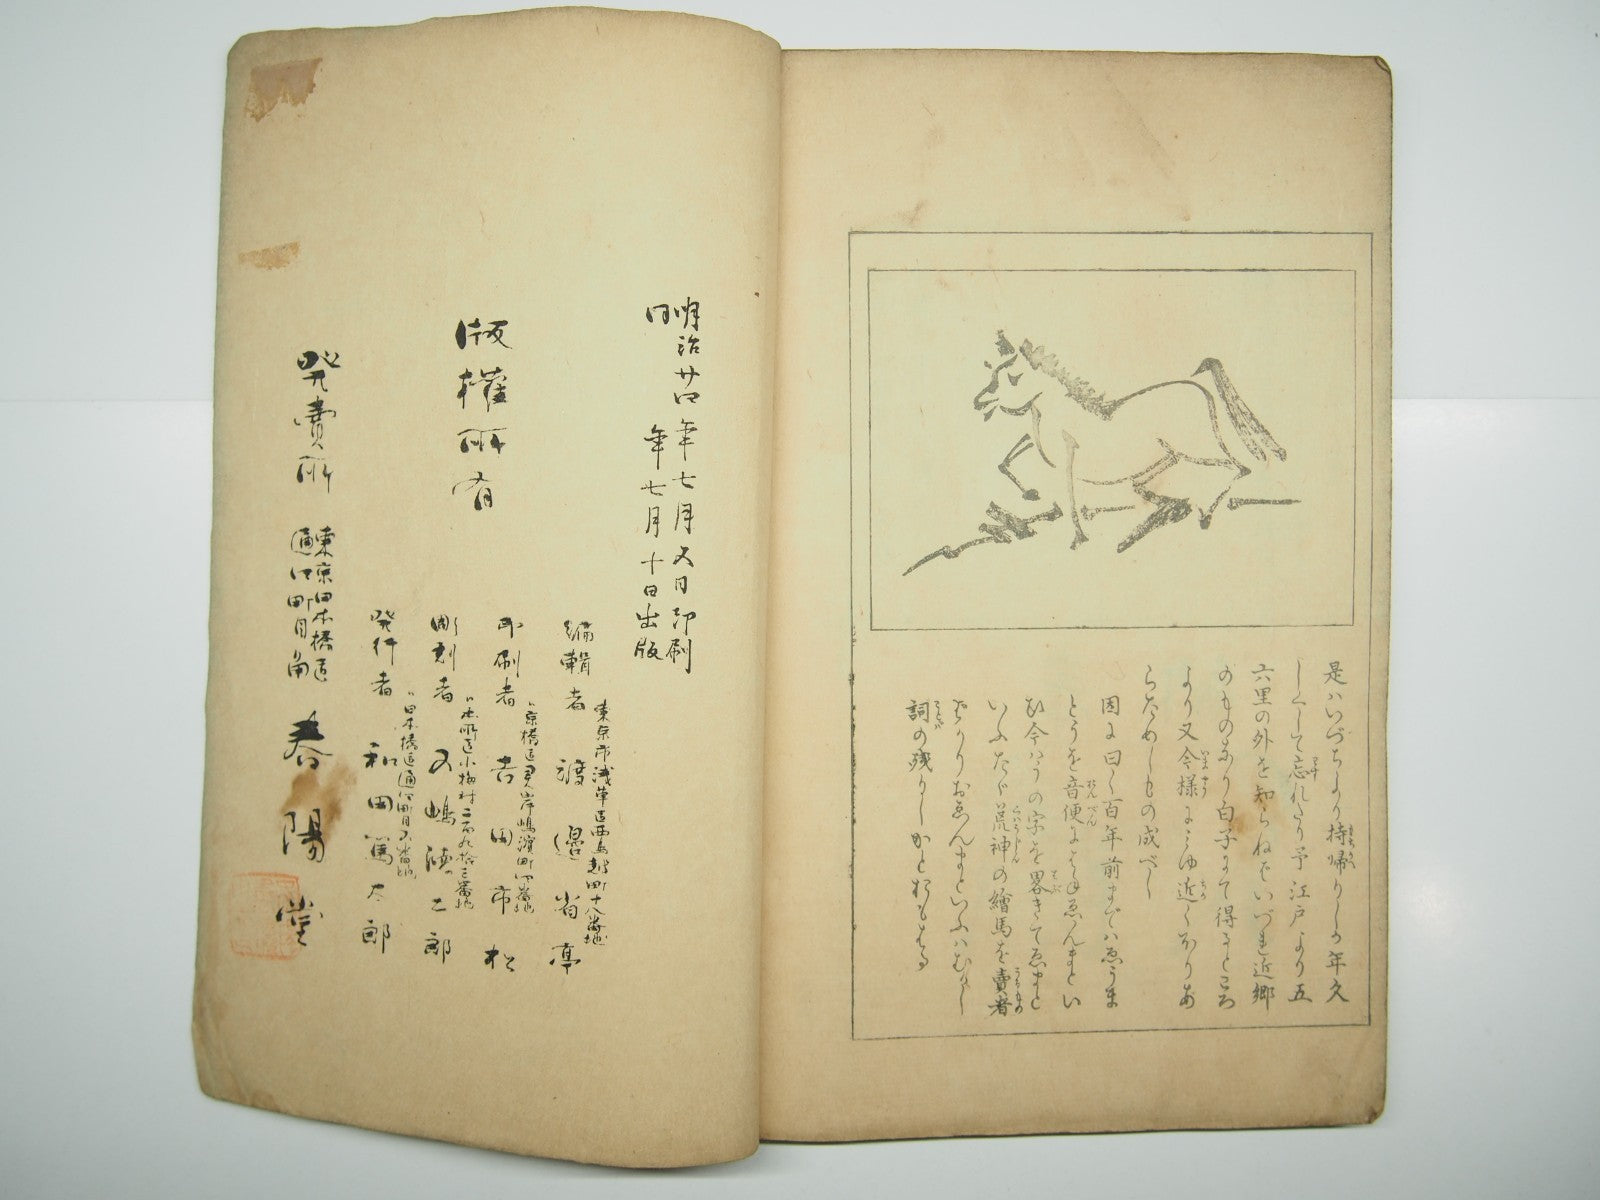 是ハいづちより持帰りしか年久
しくして忘れたり予江戸より五
六里の外を知らねばいづれ近郷
のものなり白子にて得るところ
より又今様にこゆ近くなりあ
らためしもの成べし
因に曰く百年前までハゑうま
とうを音便にはねゑんまとい
ひ今ハうの字を畧きてゑまと
いふたゞ荒神の繪馬を賣者
ばかりおゑんまといふハむかし
詞の残りしかとおもはる
明治廿四年七月五日印刷
同年七月十日出版
版權所有
編輯者 東京市浅草区西鳥越町十八番地 渡邉省亭
印刷者 〃京橋区霊岸嶋濱町四番地 吉田市松
彫刻者 〃本所区小梅村二百九拾三番地 五嶋徳二郎
発行者 〃日本橋区通四町目五番地 和田篤太郎
発賣所 東京日本橋区通四町目角 春陽堂